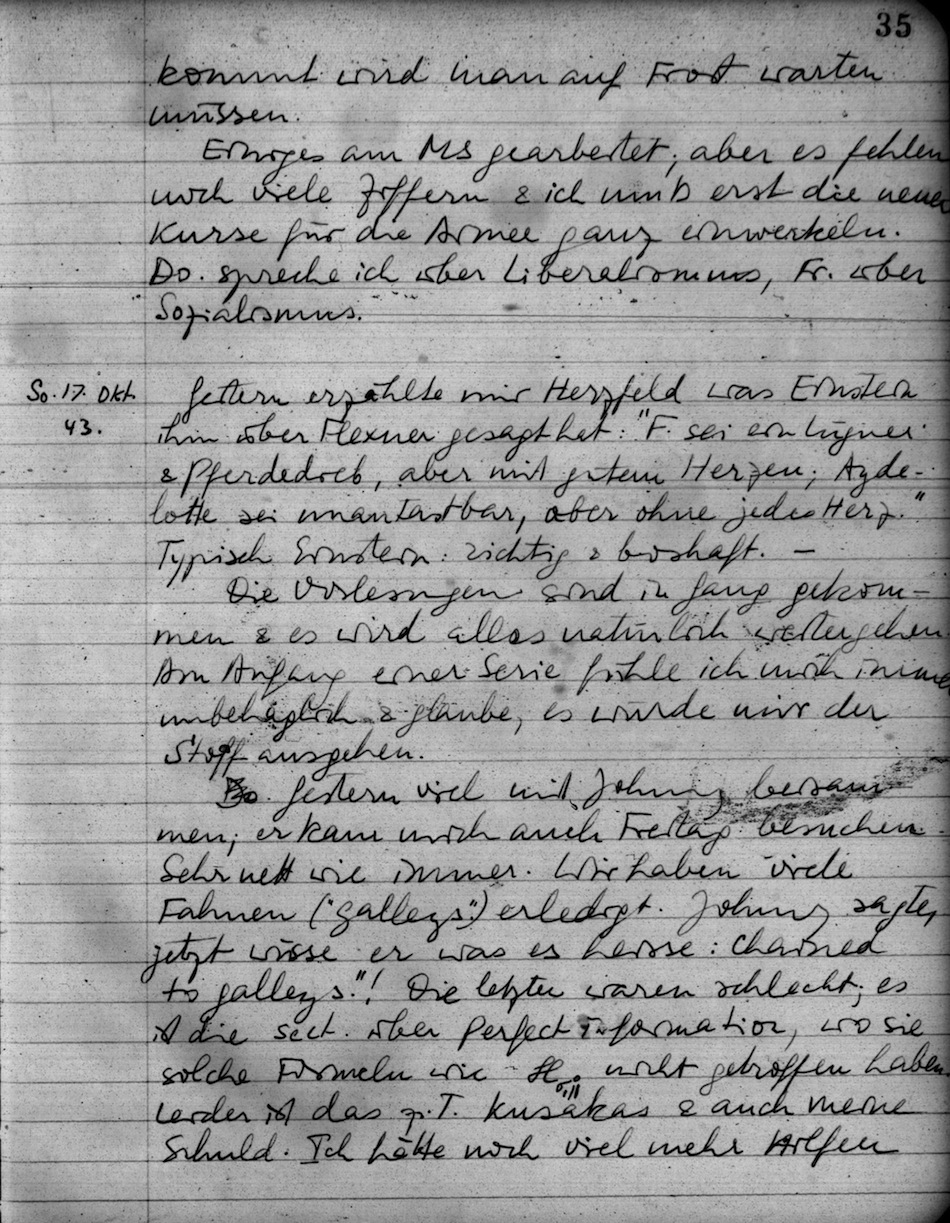 35
kommt wird man auf Frost warten
müssen.
Einiges am MS gearbeitet; aber es fehlen
noch viele Ziffern & ich muß erst die neuen
Kurse für die Armee ganz einwerkeln.
Do. spreche ich über Liberalismus, Fr. über
Sozialismus.
So. 17. Okt. 43.
Gestern erzählte mir Herzfeld was Einstein
ihm über Flexner gesagt hat: "F. sei ein Lügner
& Pferdedieb, aber mit gutem Herzen; Ayde-
lotte sei unantastbar, aber ohne jedes Herz."
Typisch Einstein: richtig & boshaft. —
Die Vorlesungen sind in Gang gekom-
men & es wird alles natürlich weitergehen
Am Anfang einer Serie fühle ich mich immer
unbehaglich & glaube, es würde mir der
Stoff ausgehen.
Gestern viel mit Johnny beisam-
men; er kam mich auch Freitag besuchen.
Sehr nett wie immer. Wir haben viele
Fahnen ("galleys") erledigt. Johnny sagte,
jetzt wisse er was es heisse: chained
to galleys."! Die letzten waren schlecht; es
ist die sect. über Perfect information, wo sie
solche Formeln wie nicht getroffen haben.
Leider ist das z.T. Kusakas & auch meine
Schuld. Ich hätte noch viel mehr Hilfen